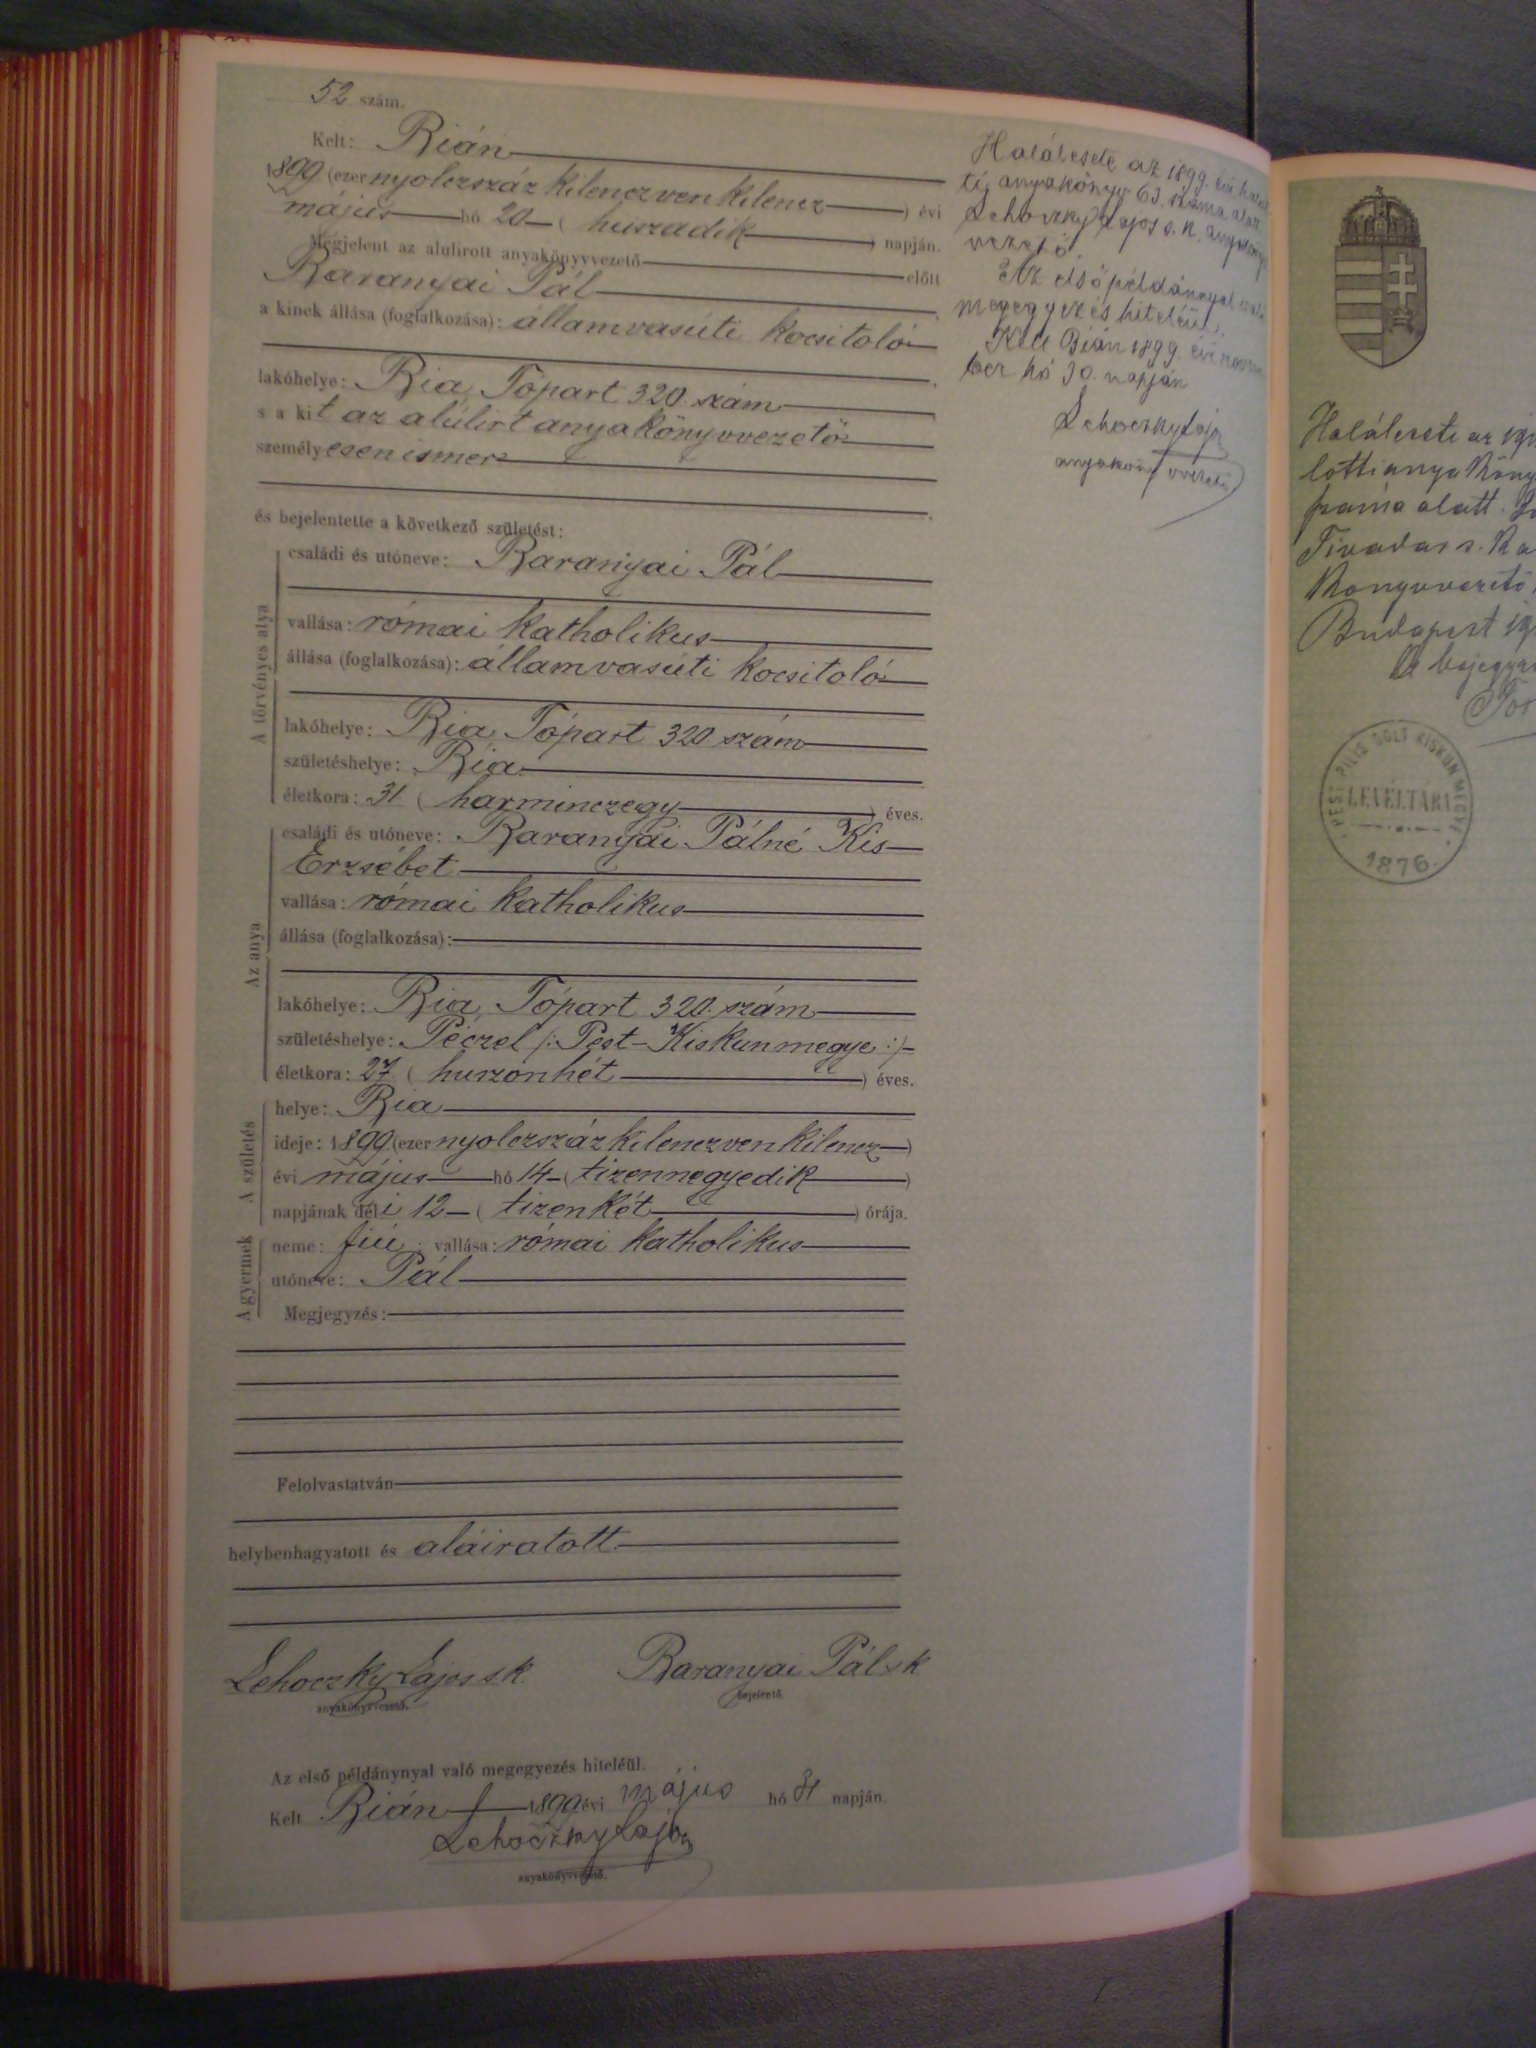 52 szám.
Kelt: Bián
1899 (ezernyolczszáz kilenczvenkilencz) évi
május hó 20 (huszadik) napján.
Megjelent az alulirott anyakönyvvezető előtt
Baranyai Pál,
a kinek állása (foglalkozása): államvasúti kocsitoló
lakóhelye: Bia, Tópart 320. szám
s a kit az alúlirt anyakönyvvezető
személyesen ismer
és bejelentette a következő születést:
A törvényes atya
családi és utóneve: Baranyai Pál
vallása: római katholikus
állása (foglalkozása): államvasúti kocsitoló
lakóhelye: Bia, Tópart 320. szám
születéshelye: Bia
életkora: 31 (harminczegy) éves.
Az anya
családi és utóneve: Baranyai Pálné Kis
Erzsébet
vallása: római katholikus
állása (foglalkozása):
lakóhelye: Bia, Tópart 320. szám
születéshelye: Péczel /: Pest-Kiskunmegye :/
életkora: 27 (huszonhét) éves.
A születés
helye: Bia
ideje: 1899. (ezernyolczszáz kilenczvenkilencz)
évi május hó 14 (tizennegyedik)
napjának déli 12 (tizenkét) órája.
A gyermek
neme: fiú; vallása: római katholikus
utóneve: Pál
Megjegyzés:
Felolvastatván
helybenhagyatott és aláiratott.
Lehoczky Lajos sk. Baranyai Pál sk
anyakönyvvezető. bejelentő.
Az első példánynyal való megegyezés hiteléül.
Kelt Bián 1899. évi május hó 31 napján.
Lehoczky Lajos
anyakönyvvezető.
Halálesete az 1899. évi halot
ti anyakönyv 63. száma alatt
Lehoczky Lajos s. k. anyakönyv
vezető
Az első példánnyal való
megegyezés hiteléül.
Kelt Bián 1899. évi novem
ber hó 30. napján
Lehoczky Lajos
anyakönyvvezető
Halálesete az
lotti anyaköny
száma alatt.
Tivadar s. k. a
könyvvezető,
Budapest
A bejegyzé
PEST PILIS SOLT KISKUN MEGYE
LEVÉLTÁRA
1876.